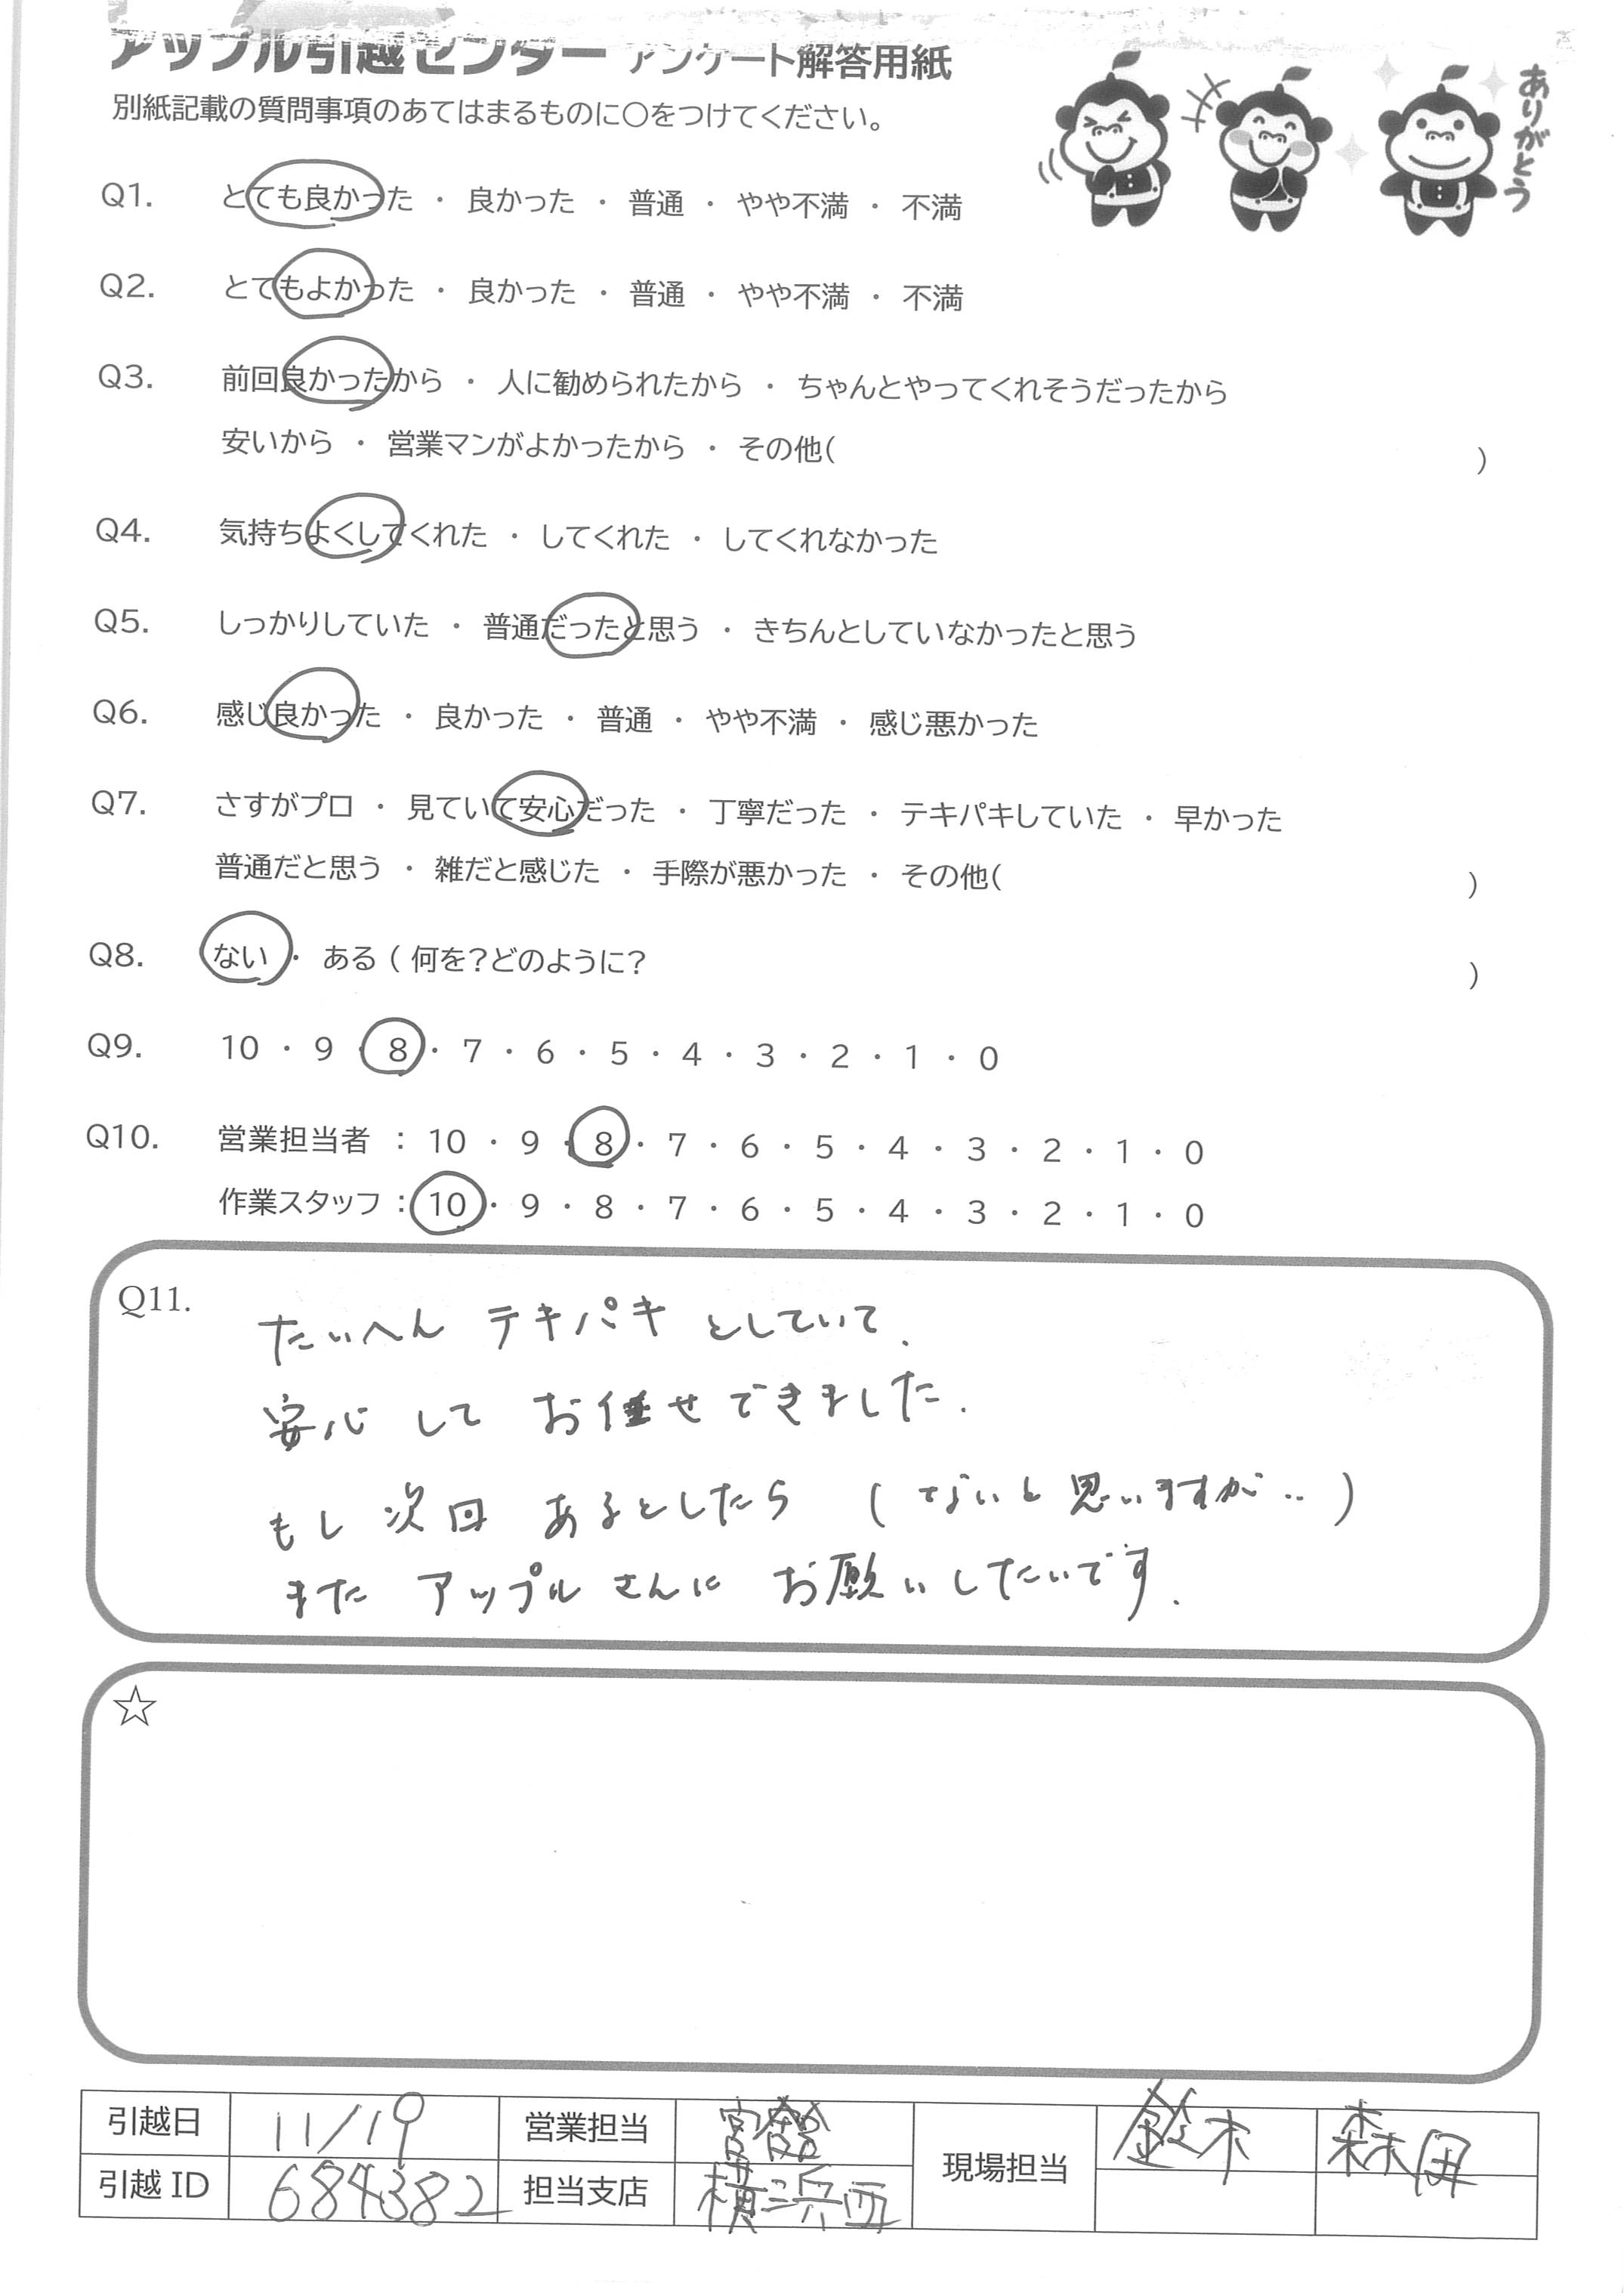 アップル引越センター アンケート解答用紙
別紙記載の質問事項のあてはまるものに○をつけてください。
ありがとう
Q1. とても良かった ・ 良かった ・ 普通 ・ やや不満 ・ 不満
Q2. とてもよかった ・ 良かった ・ 普通 ・ やや不満 ・ 不満
Q3. 前回良かったから ・ 人に勧められたから ・ ちゃんとやってくれそうだったから
安いから ・ 営業マンがよかったから ・ その他( )
Q4. 気持ちよくしてくれた ・ してくれた ・ してくれなかった
Q5. しっかりしていた ・ 普通だったと思う ・ きちんとしていなかったと思う
Q6. 感じ良かった ・ 良かった ・ 普通 ・ やや不満 ・ 感じ悪かった
Q7. さすがプロ ・ 見ていて安心だった ・ 丁寧だった ・ テキパキしていた ・ 早かった
普通だと思う ・ 雑だと感じた ・ 手際が悪かった ・ その他( )
Q8. ない ・ ある ( 何を？どのように？ )
Q9. 10 ・ 9 ・ 8 ・ 7 ・ 6 ・ 5 ・ 4 ・ 3 ・ 2 ・ 1 ・ 0
Q10. 営業担当者 ： 10 ・ 9 ・ 8 ・ 7 ・ 6 ・ 5 ・ 4 ・ 3 ・ 2 ・ 1 ・ 0
作業スタッフ ： 10 ・ 9 ・ 8 ・ 7 ・ 6 ・ 5 ・ 4 ・ 3 ・ 2 ・ 1 ・ 0
Q11. たいへん テキパキ としていて、
安心 して お任せ できました.
もし 次回 あるとしたら ( ないと 思いますが‥ )
また アップル さんに お願い したいです.
☆
引越日 11/19 営業担当 現場担当 鈴木 森田
引越 ID 684382 担当支店 横浜西